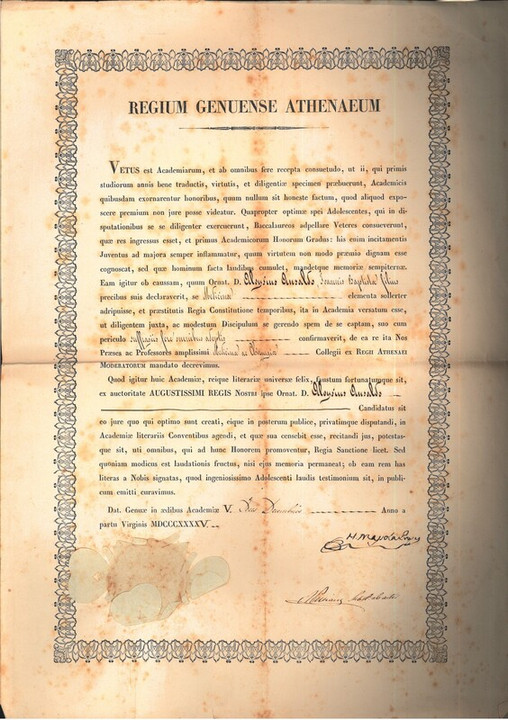 REGIUM GENUENSE ATHENAEUM
VETUS est Academiarum, et ab omnibus fere recepta consuetudo, ut ii, qui primis
studiorum annis bene traductis, virtutis, et diligentiæ specimen præbuerunt, Academicis
quibusdam exornarentur honoribus, quum nullum sit honeste factum, quod aliquod expo-
scere premium non jure posse videatur. Quapropter optimæ spei Adolescentes, qui in di-
sputationibus se se diligenter exercuerunt, Baccalaureos adpellare Veteres consueverunt,
quæ res ingressus esset, et primus Academicorum Honorum Gradus: his enim incitamentis
Juventus ad majora semper inflammatur, quum virtutem non modo præmio dignam esse
cognoscat, sed quæ hominum facta laudibus cumulet, mandetque memoriæ sempiternæ.
Eam igitur ob caussam, quum Ornat. D. Aloysius Ansaldo Joannis Baptistæ filius
precibus suis declaraverit, se Medicinæ elementa sollerter
adripuisse, et præstitutis Regia Constitutione temporibus, ita in Academia versatum esse,
ut diligentem juxta, ac modestum Discipulum se gerendo spem de se captam, suo cum
periculo suffragiis fere omnibus adeptis confirmaverit, de ea re ita Nos
Præses ac Professores amplissimi Medicinæ ac Chirurgiæ Collegii ex REGII ATHENAEI
MODERATORUM mandato decrevimus.
Quod igitur huic Academiæ, reique literariæ universæ felix, faustum fortunatumque sit,
ex auctoritate AUGUSTISSIMI REGIS NOSTRI ipse Ornat. D. Aloysius Ansaldo
Candidatus sit
eo jure quo qui optimo sunt creati, eique in posterum publice, privatimque disputandi, in
Academiæ literariis Conventibus agendi, et quæ sua censebit esse, recitandi jus, potestas-
que sit, uti omnibus, qui ad hunc Honorem promoventur, Regia Sanctione licet. Sed
quoniam modicus est laudationis fructus, nisi ejus memoria permaneat; ob eam rem has
literas a Nobis signatas, quod ingeniosissimo Adolescenti laudis testimonium sit, in publi-
cum emitti curavimus.
Dat. Genuæ in ædibus Academiæ V. Anno a
partu Virginis MDCCCXXXXV